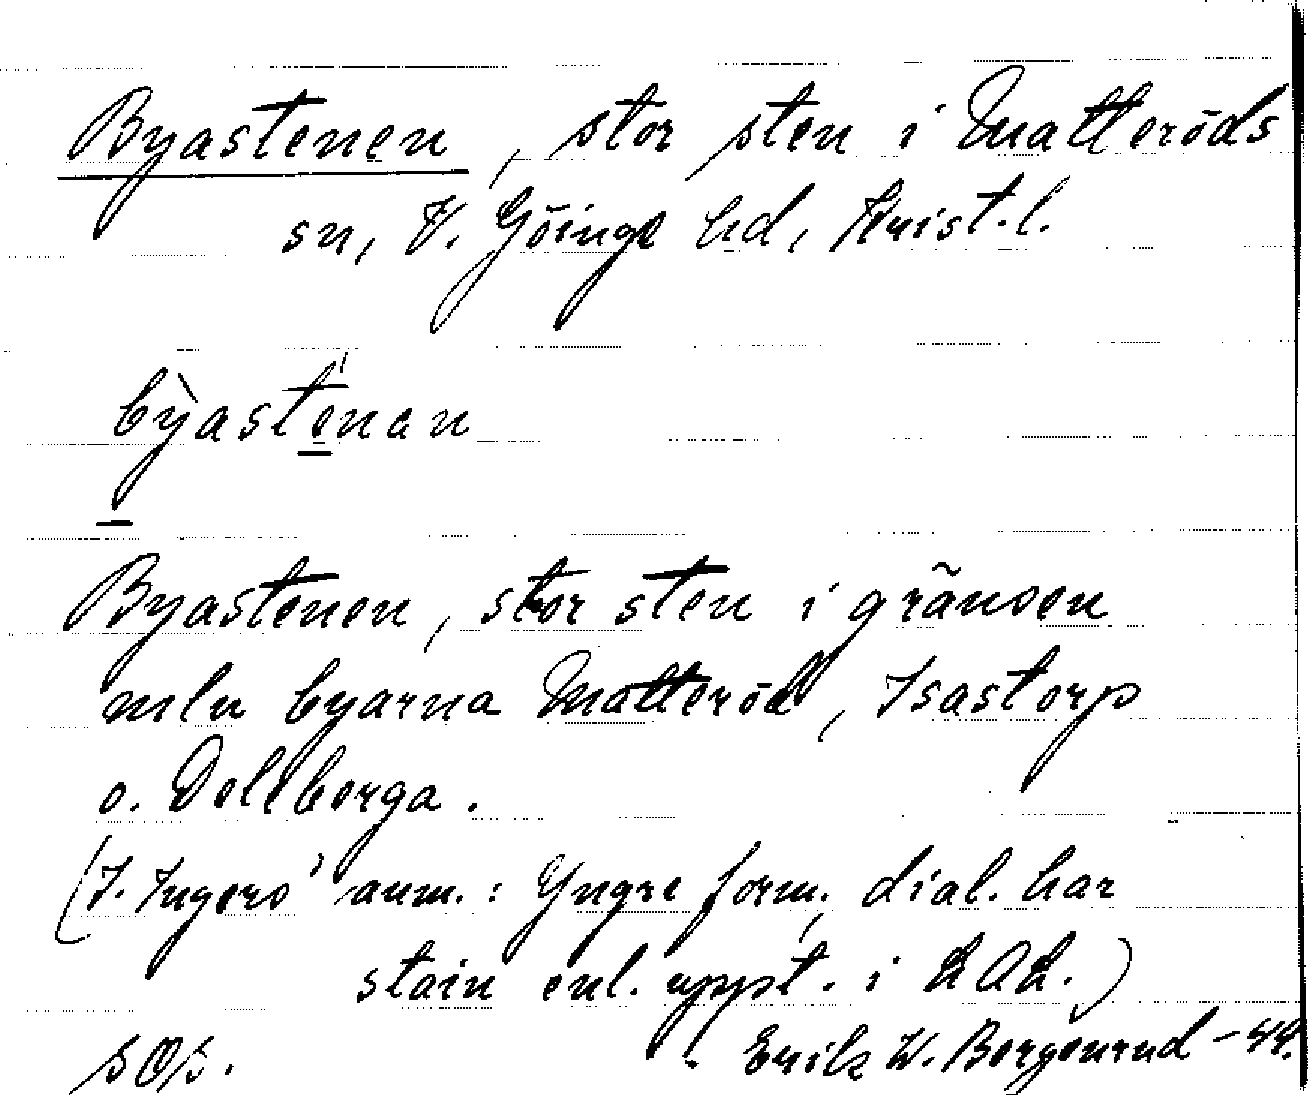 Byastenen, stor sten i Matteröds
sn, V. Göinge hd, Krist. l.
bẏ̀astenan
Byastenen, stor sten i gränsen
mln byarna Matteröd, Isastorp
o. Delleberga.
(I. Ingers' anm.: Yngre form, dial. har
stain enl. uppt. i LAL.)
SOÄ.
Erik W. Bergenrud -44.